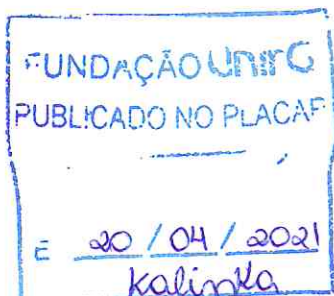 FUNDAÇÃO UnirG
PUBLICADO NO PLACAR
E 20/04/2021
Kalinka